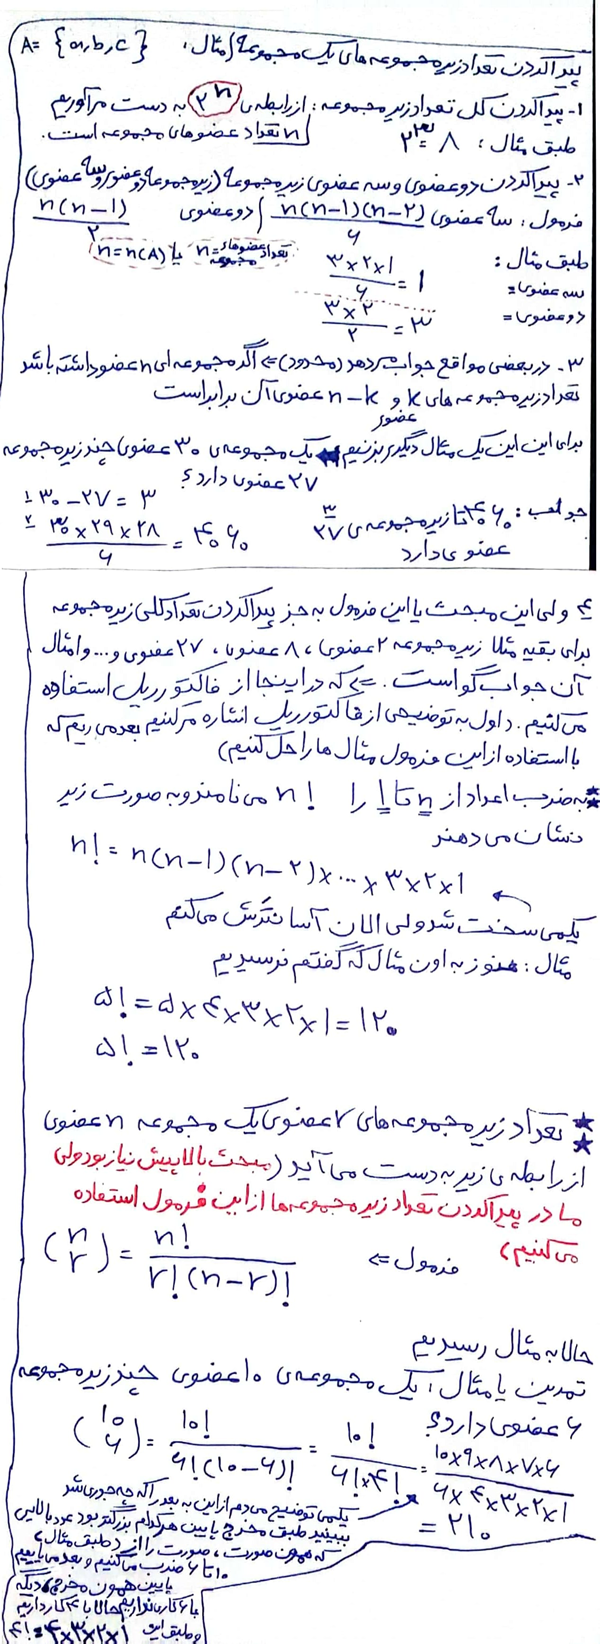 پیدا کردن تعداد زیر مجموعه های یک مجموعه/ مثال: A= {a,b,c}
۱- پیدا کردن کل تعداد زیر مجموعه: از رابطه ی ۲^n به دست می آوریم
n تعداد عضو های مجموعه است.
طبق مثال: ۲^۳ = ۸
۲- پیدا کردن دو عضوی و سه عضوی زیر مجموعه (زیر مجموعه دو عضوی و سه عضوی)
فرمول: سه عضوی n(n-1)(n-۲)/۶ / دو عضوی n(n-1)/۲
n = تعداد عضوهای مجموعه یا n=n(A)
طبق مثال:
سه عضوی= ۳×۲×۱/۶ = ۱
دو عضوی= ۳×۲/۲ = ۳
۳- در بعضی مواقع جواب می دهد (محدود) ⇐ اگر مجموعه ای n عضو داشته باشد
تعداد زیر مجموعه های k عضوی و n-k عضوی آن برابر است
برای این این یک مثال دیگری بزنیم ⇐ یک مجموعه ی ۳۰ عضوی چند زیر مجموعه
۲۷ عضوی دارد؟
۱- ۳۰-۲۷ = ۳
۲- ۳۰×۲۹×۲۸/۶ = ۴۰۶۰
جواب: ۴۰۶۰ تا زیر مجموعه ی ۳/۲۷
عضوی دارد
۴- ولی این مبحث یا این فرمول به جز پیدا کردن تعداد کلی زیر مجموعه
برای بقیه مثلا زیر مجموعه ۲ عضوی، ۸ عضوی، ۲۷ عضوی و... و امثال
آن جواب گو است. ⇐ که در اینجا از فاکتوریل استفاده
می کنیم. (اول به توضیحی از فاکتوریل اشاره می کنیم بعد می ریم که
با استفاده از این فرمول مثال ها را حل کنیم)
** به ضرب اعداد از n تا 1 را n! می نامند و به صورت زیر
نشان می دهند
n! = n(n-1)(n-۲)×...×۳×۲×۱
یکمی سخت شد ولی الان آسانترش می کنم
مثال: هنوز به اون مثال که گفتم نرسیدیم
۵! = ۵×۴×۳×۲×۱ = ۱۲۰
۵! = ۱۲۰
** تعداد زیر مجموعه های r عضوی یک مجموعه n عضوی
از رابطه ی زیر به دست می آید (مبحث بالا پیش نیاز بود ولی
ما در پیدا کردن تعداد زیر مجموعه ها از این فرمول استفاده
می کنیم)
فرمول ⇐ (n r) = n!/r!(n-r)!
حالا به مثال رسیدیم
تمرین یا مثال: یک مجموعه ی ۱۰ عضوی چند زیر مجموعه
۶ عضوی دارد؟
(۱۰ ۶) = ۱۰!/۶!(۱۰-۶)! = ۱۰!/۶!×۴! = ۱۰×۹×۸×۷×۶/۶×۴×۳×۲×۱
= ۲۱۰
یکمی توضیح می دم از این به بعد را که چه جوری شد
ببینید طبق مخرج پایین هر کدام بزرگتر بود عدد بالایی
که همون صورت، صورت را از (طبق مثال)
۱۰ تا ۶ ضرب می کنیم و بعد می یاییم
پایین همون مخرج دیگه
با ۶ کاری نداریم حالا با ۴ کار داریم
و طبق این ۴! = ۴×۳×۲×۱